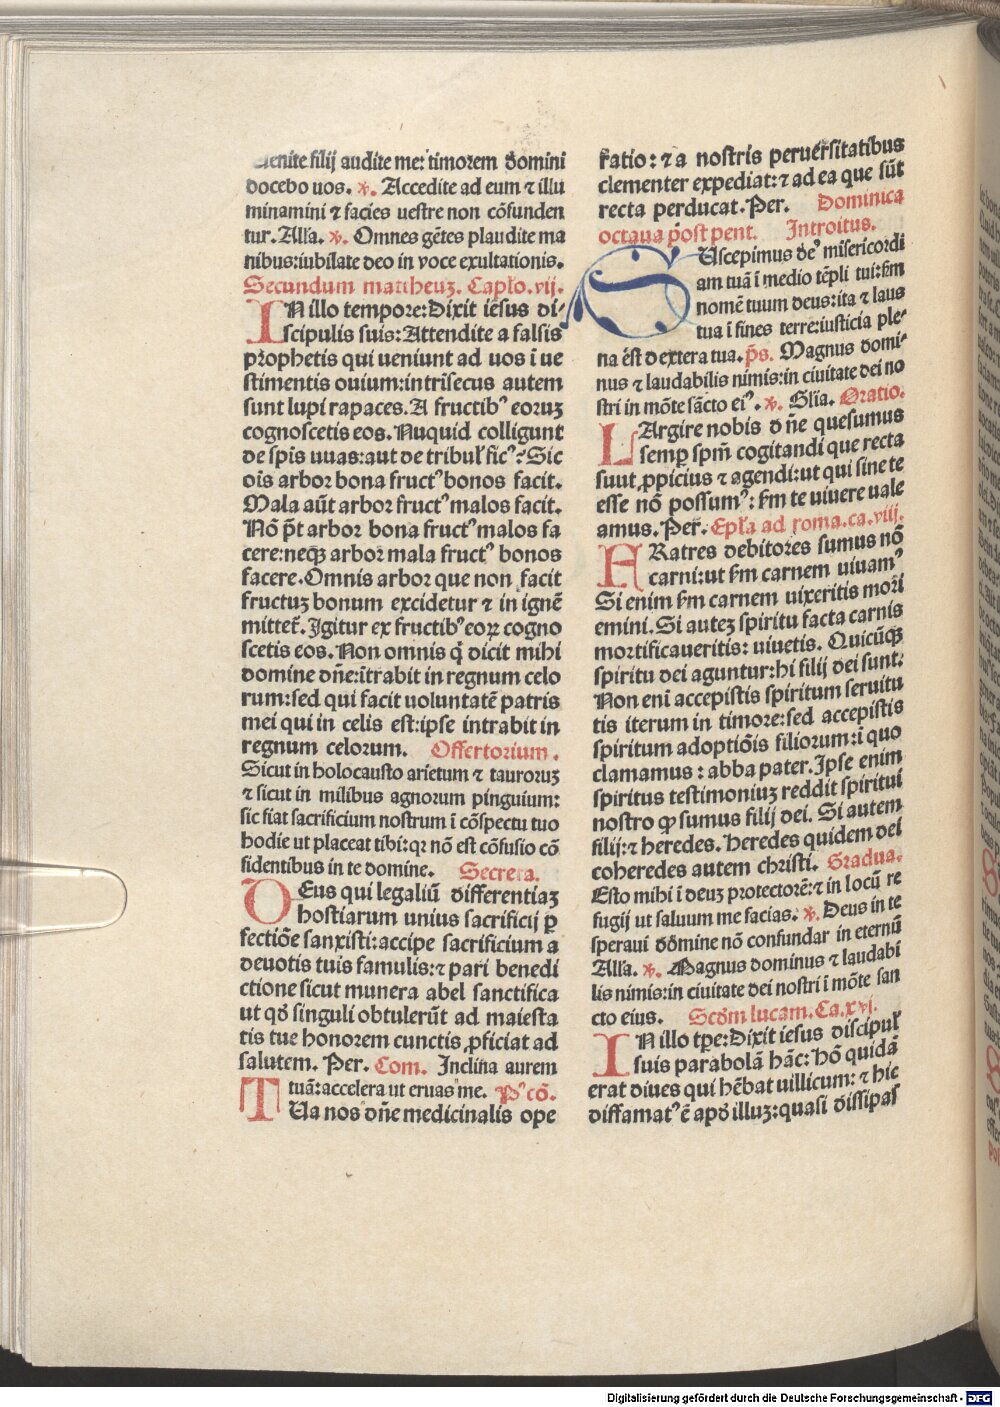 Uenite filij audite me: timorem domini
docebo uos. ꝟ. Accedite ad eum ⁊ illu
minamini ⁊ facies uestre non cōfunden
tur. Alla. ꝟ. Omnes gētes plaudite ma
nibus:iubilate deo in voce exultationis.
Secundum mattheuꝫ. Caplo.vij.
IN illo tempore:Dixit iesus di-
scipulis suis:Attendite a falsis
prophetis qui ueniunt ad uos ī ue
stimentis ouium:intrisecus autem
sunt lupi rapaces. A fructibꝰ eoruꝫ
cognoscetis eos. Nuquid colligunt
de spis uuas:aut de tribul' ficꝰ? Sic
oīs arbor bona fructꝰ bonos facit.
Mala aūt arbor fructꝰ malos facit.
Nō p̄t arbor bona fructꝰ malos fa
cere:neqꝫ arbor mala fructꝰ bonos
facere. Omnis arbor que non facit
fructuꝫ bonum excidetur ⁊ in ignē
mittet̄. Igitur ex fructibꝰ eoꝝ cogno
scetis eos. Non omnis q̄ dicit mihi
domine dn̄e:ītrabit in regnum celo
rum:sed qui facit uoluntatē patris
mei qui in celis est:ipse intrabit in
regnum celorum. Offertorium.
Sicut in holocausto arietum ⁊ tauroruꝫ
⁊ sicut in milibus agnorum pinguium:
sic fiat sacrificium nostrum ī cōspectu tuo
hodie ut placeat tibi:qꝛ nō est cōfusio cō
fidentibus in te domine. Secreta.
DEus qui legaliū differentiaꝫ
hostiarum unius sacrificij ꝑ
fectiōe sanxisti:accipe sacrificium a
deuotis tuis famulis:⁊ pari benedi
ctione sicut munera abel sanctifica
ut qd̄ singuli obtulerūt ad maiesta
tis tue honorem cunctis ꝓficiat ad
salutem. Per. Com. Inclina aurem
tuā:accelera ut eruas me. Pꝰ cō.
TUa nos dn̄e medicinalis ope
ratio:⁊ a nostris peruersitatibus
clementer expediat:⁊ ad ea que sūt
recta perducat. Per. Dominica
octaua post pent. Introitus.
SUscepimus deꝰ misericordi
am tuā ī medio tēpli tui:s̄m
nomē tuum deus:ita ⁊ laus
tua ī fines terre:iusticia ple-
na ēst dextera tua. p̄s. Magnus domi-
nus ⁊ laudabilis nimis:in ciuitate dei no
stri in mōte sācto eiꝰ. ꝟ. Glīa. Oratio.
LArgire nobis dn̄e quesumus
semꝑ spm̄ cogitandi que recta
suut ꝓpicius ⁊ agendi:ut qui sine te
esse nō possumꝰ: s̄m te uiuere uale
amus. Per. Epl'a ad roma.ca.viij.
FRatres debitores sumus nō
carni:ut s̄m carnem uiuamꝰ
Si enim s̄m carnem uixeritis mori
emini. Si auteꝫ spiritu facta carnis
mortificaueritis: uiuetis. Quicūqꝫ
spiritu dei aguntur:hi filij dei sunt.
Non enī accepistis spiritum seruitu
tis iterum in timore:sed accepistis
spiritum adoptiōis filiorum:ī quo
clamamus: abba pater. Ipse enim
spiritus testimoniuꝫ reddit spiritui
nostro ꝙ sumus filij dei. Si autem
filij:⁊ heredes. Heredes quidem dei
coheredes autem christi. Gradua.
Esto mihi ī deuꝫ protectorē:⁊ in locū re
fugij ut saluum me facias. ꝟ. Deus in te
speraui domine nō confundar in eternū
Alla. ꝟ. Magnus dominus ⁊ laudabi
lis nimis:in ciuitate dei nostri ī mōte san
cto eius. Scd̄m lucam. Ca.xvj.
IN illo tp̄e:Dixit iesus discipul'
suis parabolā hāc: hō quidā
erat diues qui hēbat uillicum: ⁊ hic
diffamatꝰ ē apd̄ illuꝫ:quasi dissipas
Digitalisierung gefördert durch die Deutsche Forschungsgemeinschaft - DFG